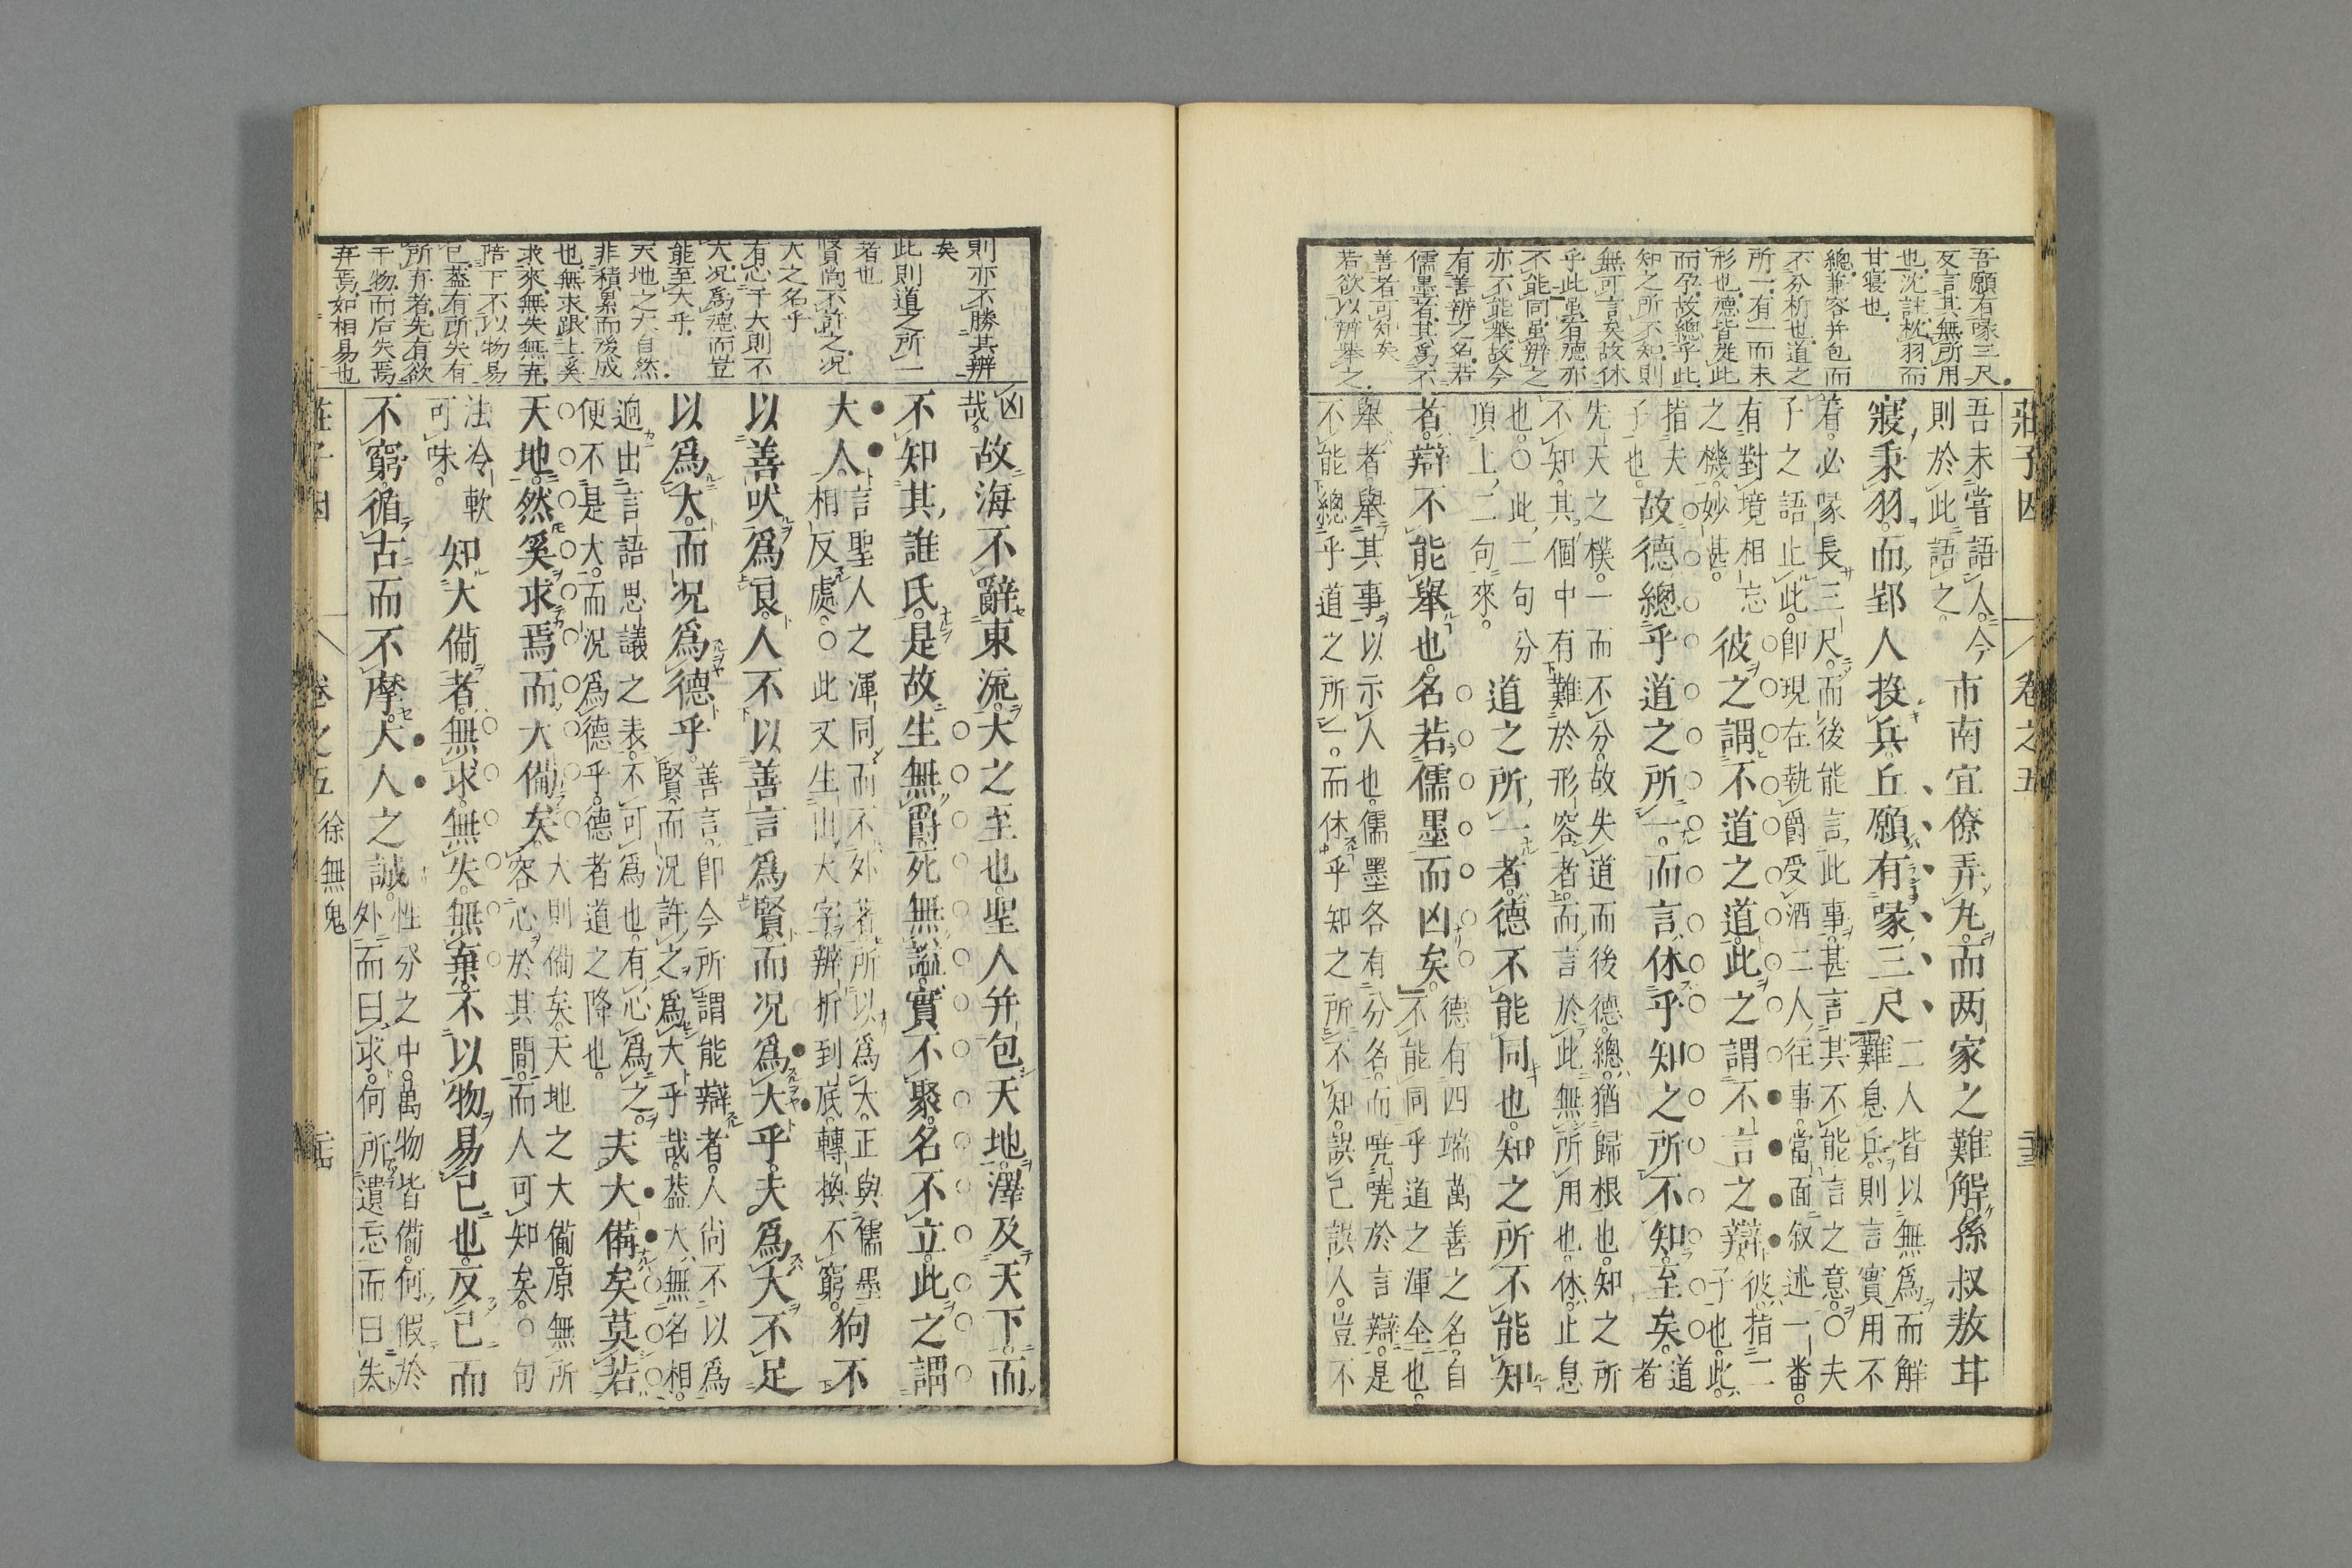 莊子因
卷之五
吾願有喙三尺
反言其無所用
也沈註枕羽而
甘寢也
總兼容并包而
不分析也道之
所一有一而未
形也德皆從此
而孕故總乎此
知之所不知則
無可言矣故休
乎此虽有德亦
不能同虽辨之
亦不能舉故今
有善辨之名若
儒墨者其爲不
善者可知矣
若欲以辨舉之
吾未嘗語人今
則於此語之
市南宜僚弄丸而两家之難解孫叔敖甘
寢秉羽而郢人投兵丘願有喙三尺
二人皆以無爲而解
難息兵則言實用不
着必喙長三尺而後能言此事甚言其不能言之意○夫
子之語止此卽現在執爵受酒二人往事當面叙述一番
有對境相忘
之機妙甚
彼之謂不道之道此之謂不言之辯
彼指二
子也此
指夫
子也
故德總乎道之所一而言休乎知之所不知至矣
道
者
先天之樸一而不分故失道而後德總猶歸根也知之所
不知其個中有難於形容者而言於此無所用也休止息
也○此二句分
頂上二句來
道之所一者德不能同也知之所不能知
者辯不能舉也名若儒墨而凶矣
德有四端萬善之名自
不能同乎道之渾全也
舉者舉其事以示人也儒墨各有分名而嘵嘵於言辯是
不能總乎道之所一而休乎知之所不知誤己誤人豈不
則亦不勝其辨
矣
此則道之所一
者也
賢尚不許之况
大之名乎
有心于大則不
大况爲德而豈
能至大乎
天地之大自然
非積累而後成
也無求跟上奚
求來無失無弃
陪下不以物易
已蓋有所失有
所弃者先有欲
于物而后失焉
弃焉如相易也
凶
哉
故海不辭東流大之至也聖人弁包天地澤及天下而
不知其誰氏是故生無爵死無謚實不聚名不立此之謂
大人
言聖人之渾同而不外若所以爲大正與儒墨
相反處○此又生出大字辨折到底轉換不窮
狗不
以善吠爲良人不以善言爲賢而况爲大乎夫爲大不足
以爲大而况爲德乎
善言卽今所謂能辯者人尚不以爲
賢而况許之爲大乎哉葢大無名相
逈出言語思議之表不可爲也有心爲之
便不是大而况爲德乎德者道之降也
夫大備矣莫若
天地然奚求焉而大備矣
大則備矣天地之大備原無所
容心於其間而人可知矣○句
法冷軟
可味
知大備者無求無失無棄不以物易己也反己而
不窮循古而不摩大人之誠
性分之中萬物皆備何假於
外而曰求何所遺忘而曰失
卷之五 徐無鬼